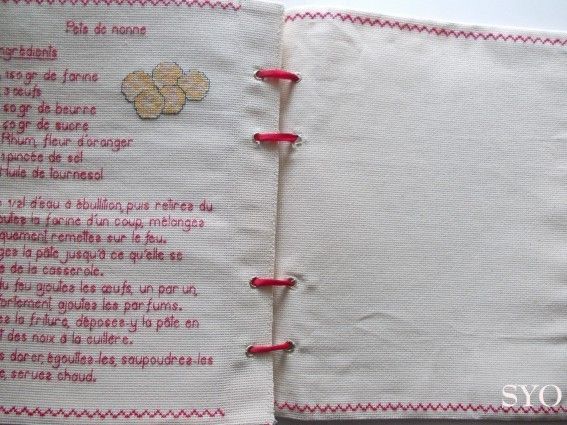 Pets de nonne
ngrédients
150 gr de farine
3 œufs
50 gr de beurre
60 gr de sucre
Rhum, fleur d'oranger
1 pincée de sel
Huile de tournesol
1/2l d'eau à ébullition, puis retirez du
outez la farine d'un coup, mélangez
quement remettez sur le feu.
gez la pâte jusqu'à ce qu'elle se
e de la casserole.
du feu ajoutez les œufs, un par un,
fortement, ajoutez les parfums.
ez la friture, déposez-y la pâte en
t des noix à la cuillère.
s dorer, égouttez-les, saupoudrez-les
e, servez chaud.
SYO